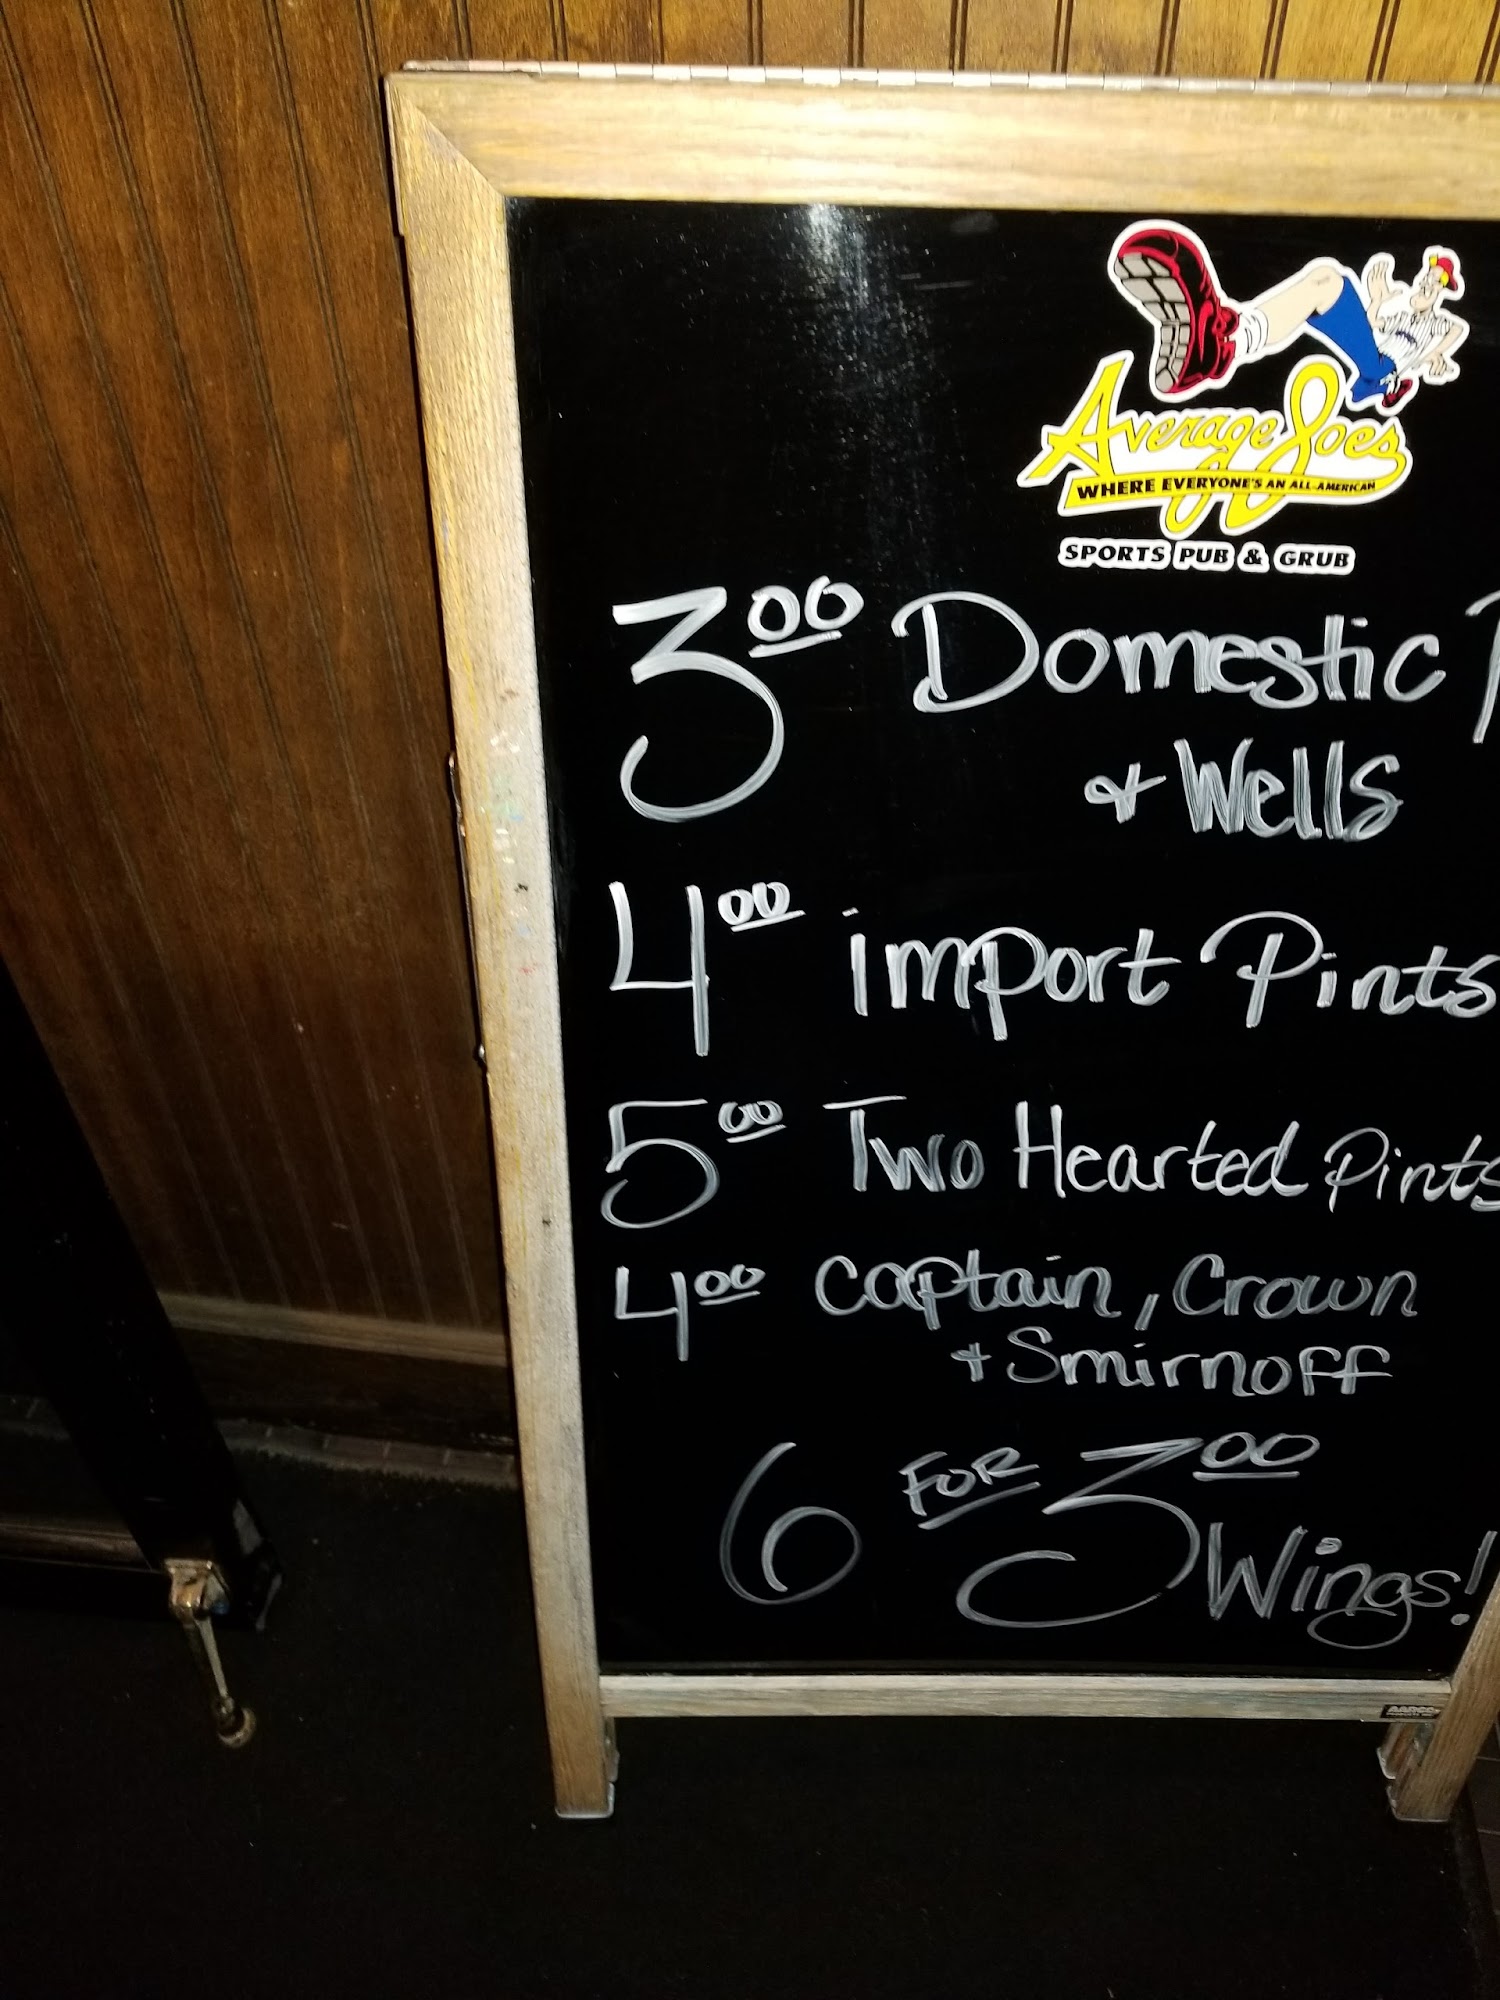 Average Joes
WHERE EVERYONE'S AN ALL-AMERICAN
SPORTS PUB & GRUB
3.00 Domestic
& Wells
4.00 import Pints
5.00 Two Hearted Pints
4.00 Captain, Crown
& Smirnoff
6 FOR 3.00 Wings!